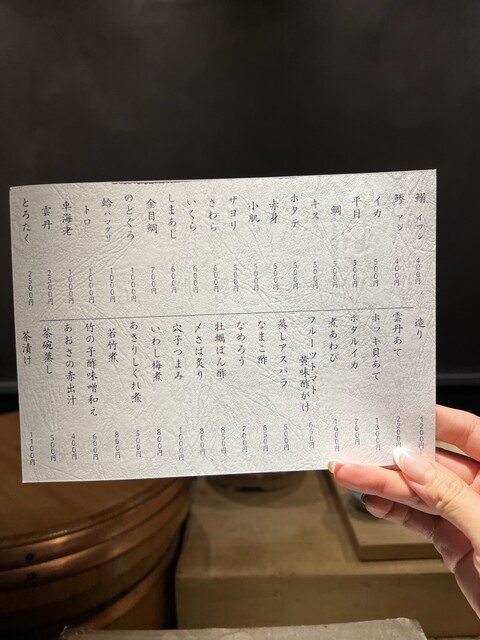 鰯 イワシ 400円
鯵 アジ 400円
イカ 500円
平目 500円
鯛 500円
キス 500円
ホタテ 500円
赤身 500円
小肌 500円
サヨリ 500円
さわら 600円
いくら 600円
しまあじ 600円
金目鯛 700円
のどぐろ 1000円
蛤 ハマグリ 1000円
トロ 1000円
車海老 1000円
雲丹 2500円
とろたく 2500円
造り 1200円
雲丹あて 2200円
ホッキ貝あて
ホタルイカ 700円
煮あわび 1600円
フルーツトマト
黄味酢がけ 650円
蒸しアスパラ 500円
なまこ酢 650円
なめろう 700円
牡蠣ぽん酢 850円
〆さば炙り 800円
穴子つまみ 1000円
いわし梅煮 800円
あさりしぐれ煮 500円
若竹煮 800円
竹の子酢味噌和え 600円
あおさの赤出汁 400円
茶碗蒸し 500円
茶漬け 1100円